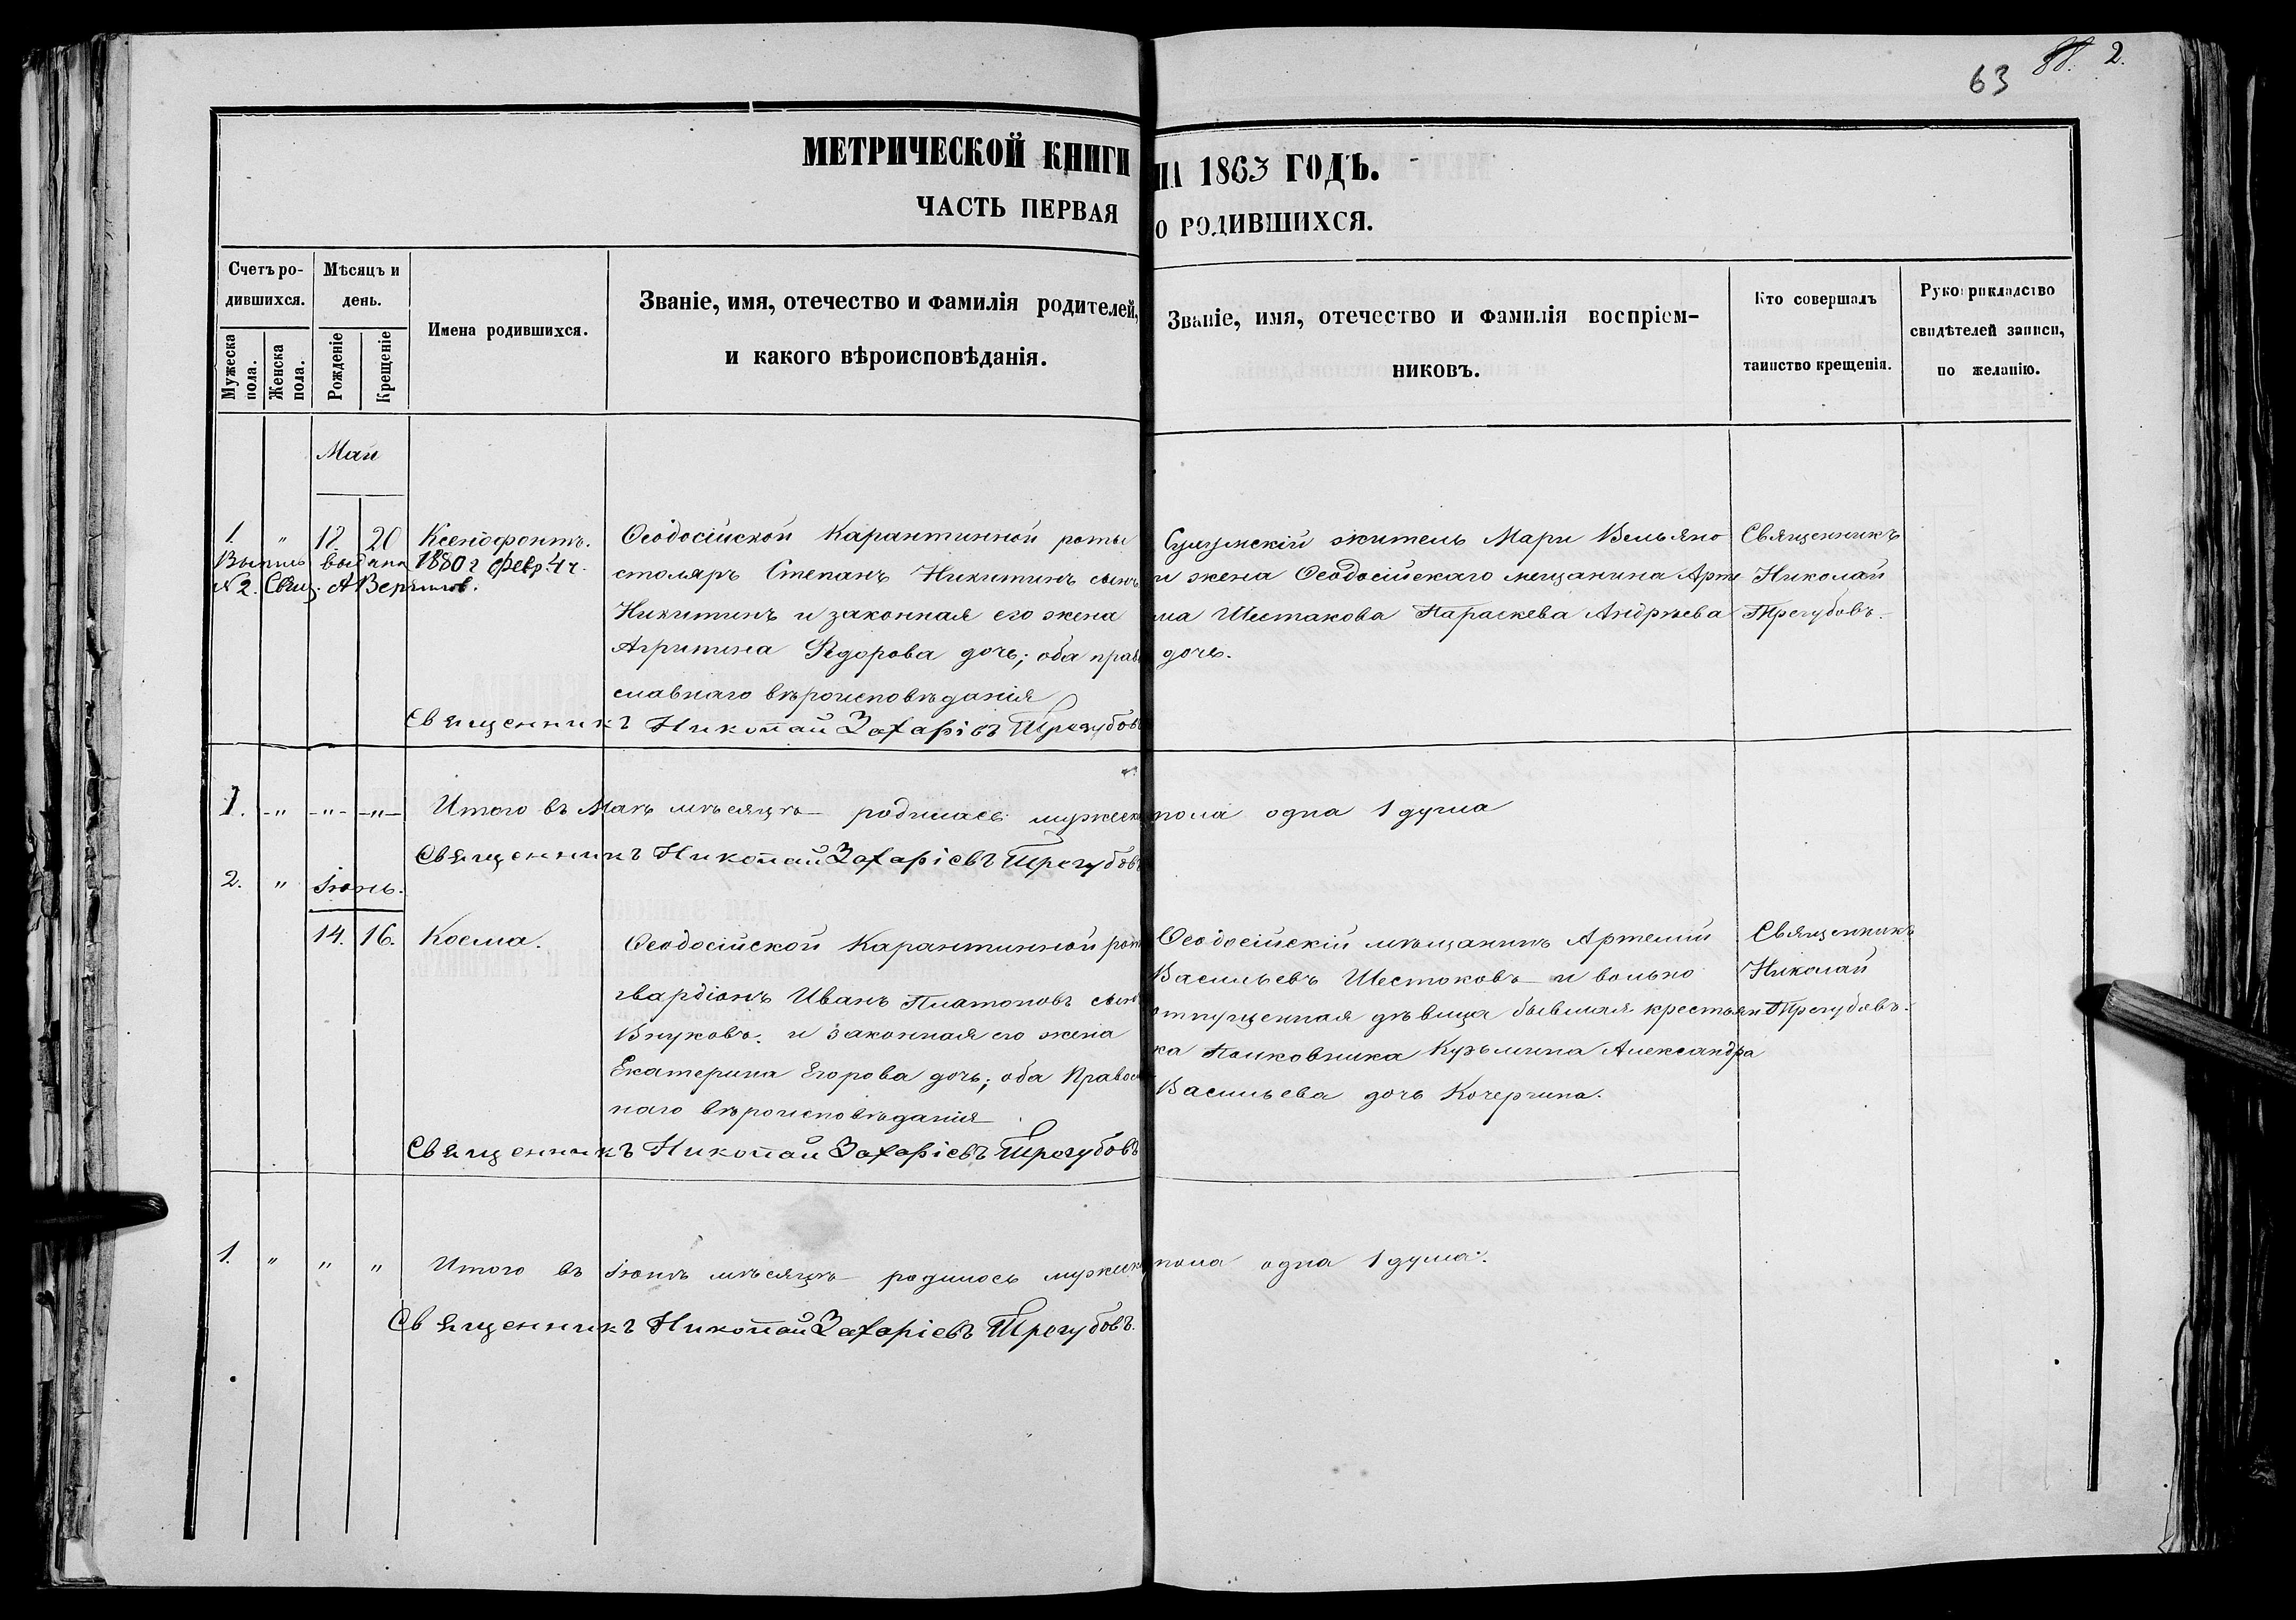 63 88. 2.
МЕТРИЧЕСКОЙ КНИГИ НА 1863 ГОДЪ.
ЧАСТЬ ПЕРВАЯ О РОДИВШИХСЯ.
Счетъ ро-
дившихся.
Мужеска
пола.
Женска
пола.
Мѣсяцъ и
день.
Рожденіе
Крещеніе
Имена родившихся.
Званіе, имя, отечество и фамилія родителей,
и какого вѣроисповѣданія.
Званіе, имя, отечество и фамилія воспріем-
никовъ.
Кто совершалъ
таинство крещенія.
Рукоприкладство
свидѣтелей записи,
по желанію.
Май
1. " 12. 20 Ксенофонтъ.
Выпись выдана 1880 г Февр. 4 ч.
№ 2. Свящ. А
Ѳеодосійской Карантинной роты
столяръ Степанъ Никитинъ сынъ
Никитинъ и законная его жена
Агрипина Ѳедорова дочь; оба право
славнаго вѣроисповѣданія
житель Мари
и жена Ѳеодосійскаго мещанина Арте
ма Шестакова Параскева Андреева
дочь.
Священникъ
Николай
Трегубовъ.
Священникъ Николай Захаріевъ Трегубовъ
1. -"- -"- -"- Итого въ Маѣ мѣсяцѣ родилась мужеска пола одна 1 душа
Священникъ Николай Захаріевъ Трегубовъ
2. " Іюнь.
14. 16. Косма.
Ѳеодосійской Карантинной роты
гвардіонъ Иванъ Платоновъ сынъ
Внуковъ. и законная его жена
Екатерина Егорова дочь; оба Православ
наго вѣроисповѣданія
Ѳеодосійскій мѣщанинъ Артемий
Васильевъ Шестоковъ и вольно
отпущенная дѣвица бывшая крестьян
ка Полковника Кузьмина Александра
Васильева дочь Кочергина.
Священникъ
Николай
Трегубовъ.
Священникъ Николай Захаріевъ Трегубовъ
1. " " " Итого въ Іюнѣ мѣсяцѣ родилось мужеска пола одна 1 душа.
Священникъ Николай Захаріевъ Трегубовъ.